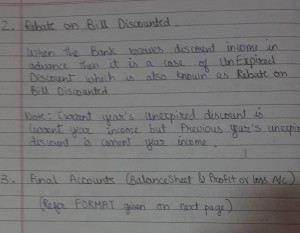 2. Rebate on Bill Discounted.
When the Bank receives discount income in
advance then it is a case of UnExpired
Discount which is also known as Rebate on
Bill Discounted
Note: Current year's Unexpired discount is
current year income but Previous year's unexpir
discount is current year income.
3. Final Accounts (Balance Sheet & Profit or loss A/c)
(Refer FORMAT given on next page)